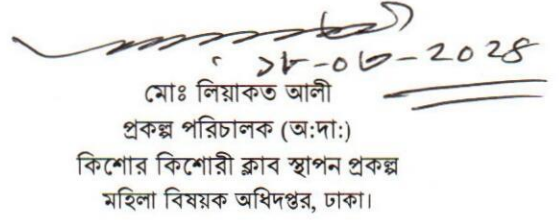 ১৮-০৬-২০২৪
মোঃ লিয়াকত আলী
প্রকল্প পরিচালক (অ:দা:)
কিশোর কিশোরী ক্লাব স্থাপন প্রকল্প
মহিলা বিষয়ক অধিদপ্তর, ঢাকা।